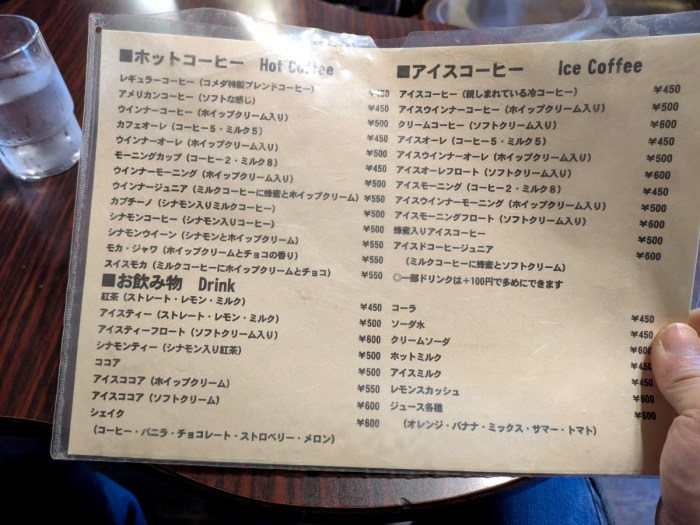 ■ホットコーヒー Hot Coffee
レギュラーコーヒー（コメダ特製ブレンドコーヒー） ¥450
アメリカンコーヒー（ソフトな感じ） ¥450
ウインナーコーヒー（ホイップクリーム入り） ¥500
カフェオーレ（コーヒー５・ミルク５） ¥450
ウインナーオーレ（ホイップクリーム入り） ¥500
モーニングカップ（コーヒー２・ミルク８） ¥450
ウインナーモーニング（ホイップクリーム入り） ¥500
ウインナージュニア（ミルクコーヒーに蜂蜜とホイップクリーム） ¥550
カプチーノ（シナモン入りミルクコーヒー） ¥500
シナモンコーヒー（シナモン入りコーヒー） ¥500
シナモンウイーン（シナモンとホイップクリーム） ¥550
モカ・ジャワ（ホイップクリームとチョコの香り） ¥550
スイスモカ（ミルクコーヒーにホイップクリームとチョコ） ¥550
■アイスコーヒー Ice Coffee
アイスコーヒー（親しまれている冷コーヒー） ¥450
アイスウインナーコーヒー（ホイップクリーム入り） ¥500
クリームコーヒー（ソフトクリーム入り） ¥600
アイスオーレ（コーヒー５・ミルク５） ¥450
アイスウインナーオーレ（ホイップクリーム入り） ¥500
アイスオーレフロート（ソフトクリーム入り） ¥600
アイスモーニング（コーヒー２・ミルク８） ¥450
アイスウインナーモーニング（ホイップクリーム入り） ¥500
アイスモーニングフロート（ソフトクリーム入り） ¥600
蜂蜜入りアイスコーヒー ¥500
アイスドコーヒージュニア ¥600
（ミルクコーヒーに蜂蜜とソフトクリーム）
◎一部ドリンクは＋100円で多めにできます
■お飲み物 Drink
紅茶（ストレート・レモン・ミルク） ¥450
アイスティー（ストレート・レモン・ミルク） ¥500
アイスティーフロート（ソフトクリーム入り） ¥600
シナモンティー（シナモン入り紅茶） ¥500
ココア ¥500
アイスココア（ホイップクリーム） ¥550
アイスココア（ソフトクリーム） ¥600
シェイク ¥600
（コーヒー・バニラ・チョコレート・ストロベリー・メロン）
コーラ ¥450
ソーダ水 ¥450
クリームソーダ
ホットミルク
アイスミルク
レモンスカッシュ ¥600
ジュース各種 ¥600
（オレンジ・バナナ・ミックス・サマー・トマト）